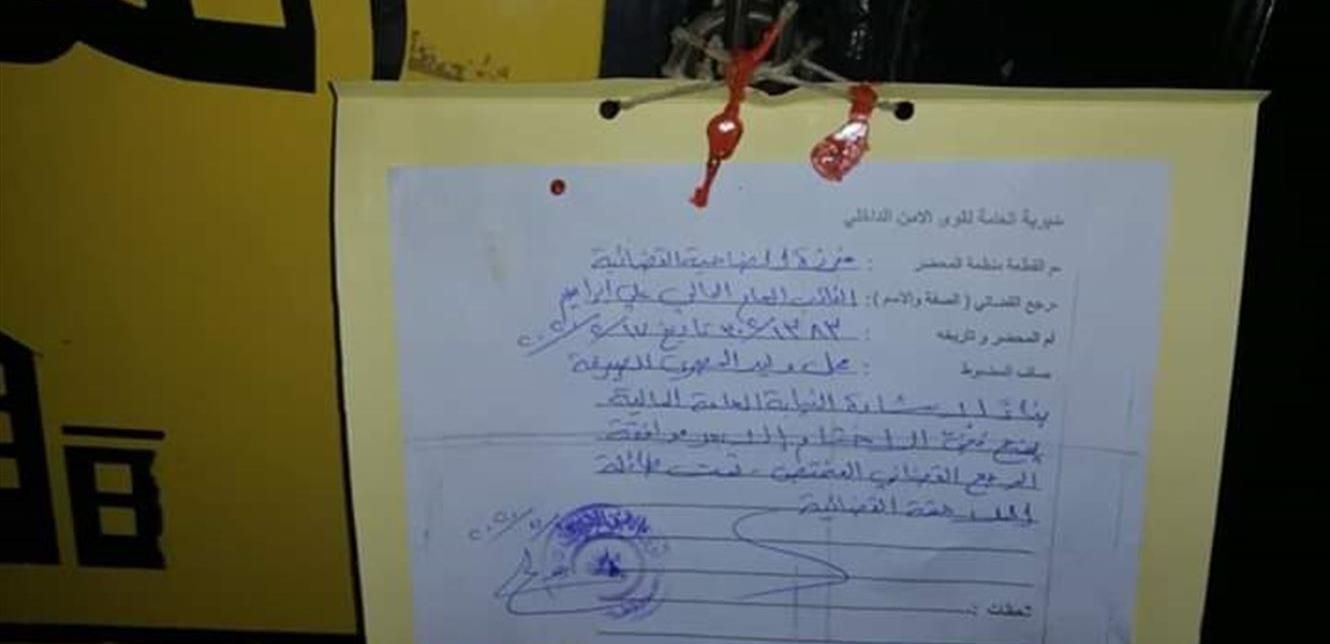 مديرية العامة لقوى الامن الداخلي
م القطعة منظمة المحضر : مفرزة الضاحية القضائية
مرجع القضائي ( الصفة والاسم ) : النائب العام المالي علي ابراهيم
قم المحضر وتاريخه : ٣٠٢/١٣٨٣ تاريخ
المضبوط : محل وليد للصيرفة
بناءً لاشارة النيابة العامة المالية
يمنع نزع الاختام الا بعد موافقة
المرجع القضائي المختص ، تحت طائلة
الملاحقة القضائية